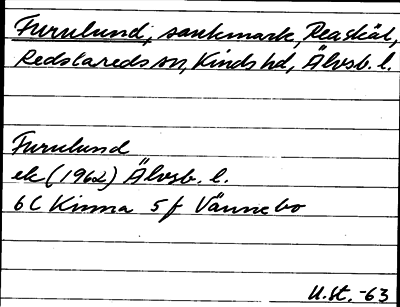 Furulund, sankmark, Reaskäl,
Redslareds sn, Kinds hd, Älvsb. l.
Furulund
ek (1962) Älvsb. l.
6C Kinna 5f Vännebo
U.St. -63